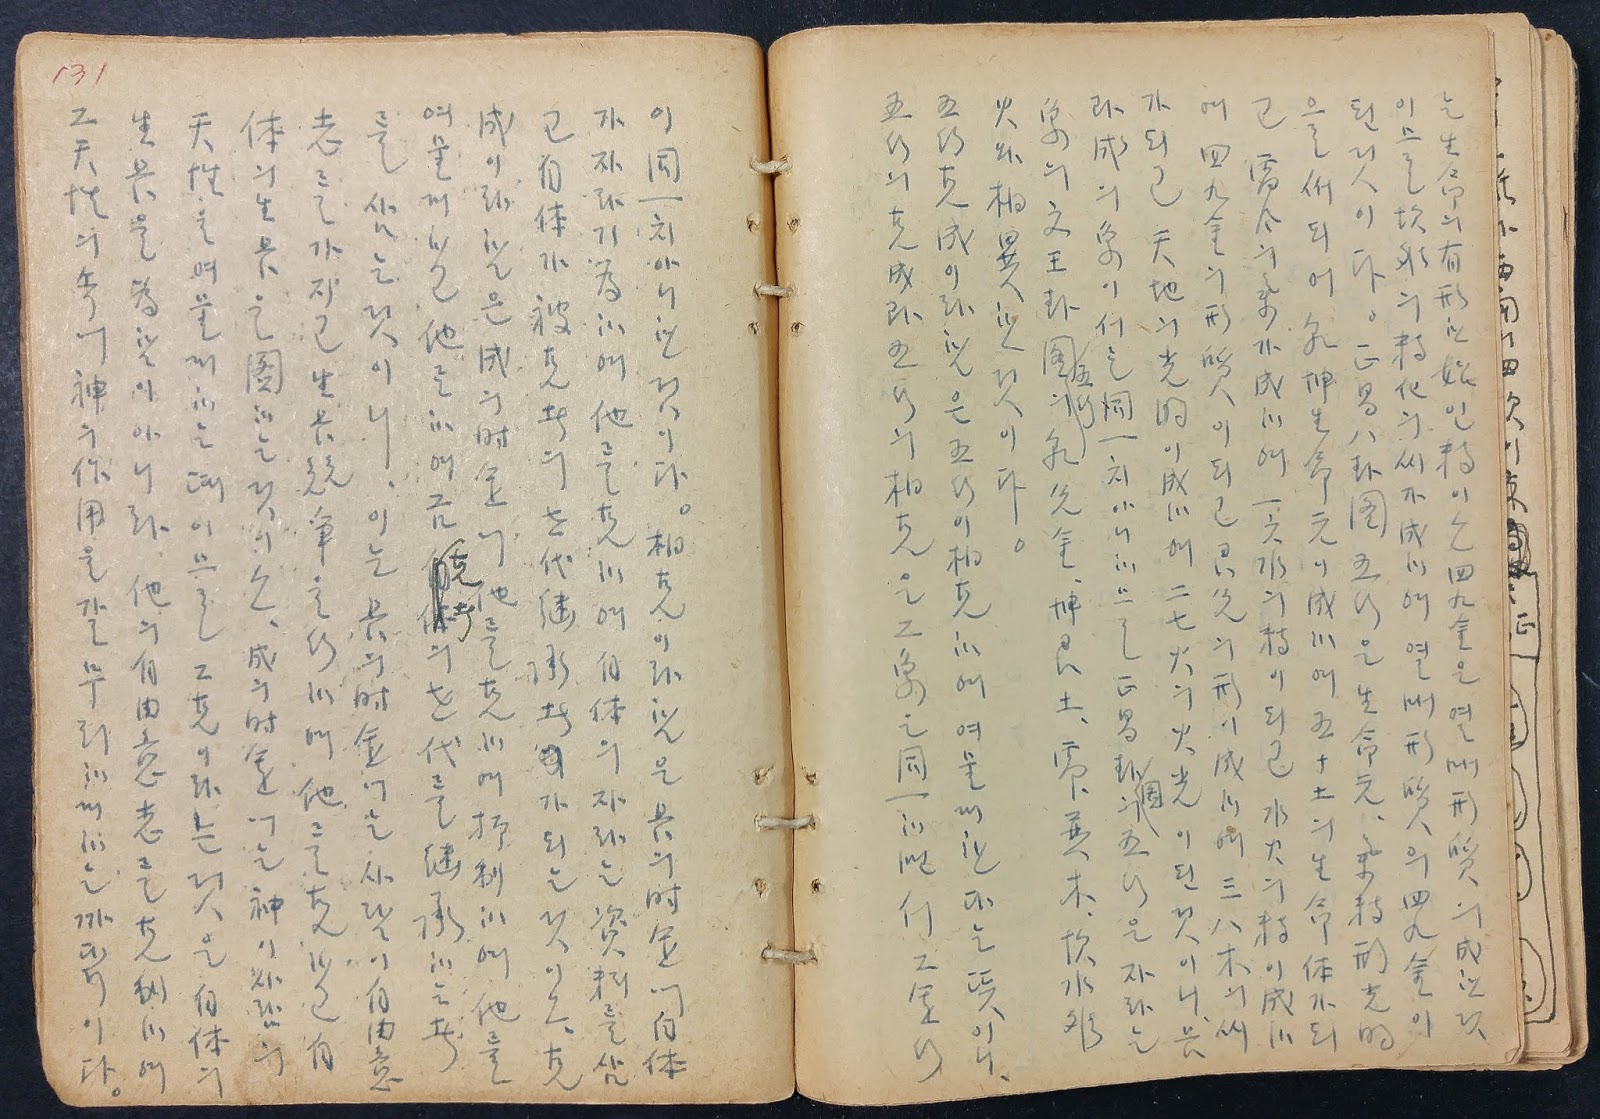 는 生命의 有形한 始인 精이오 四九金은 열매 形質의 成한 것
이므로 坎離의 精化의 씨가 成하여 열매 形質의 四九金이
된 것이다。正易八卦图 五行은 生命元、氣精形光明
으로 되어 乾坤生命元이 成하여 五十土의 生命体가 되
고 震巽의 氣가 成하여 一六水의 精이되고 水火의 精이 成하
여 四九金의 形質이되고 艮兌의 形이 成하여 三八木의 씨
가 되고 天地의 光明이 成하여 二七火의 火光이 된 것이니、長
과 成의 象이 서로 同一치 아니하므로 正易卦图의 五行은 자라는
象의 文王卦图의 五行 乾兌金、坤艮土、震巽木、坎水離
火와 相異한 것이다。
五行克成이라 함은 五行이 相克하여 여물게 한다는 뜻이니、
五行의 克成과 五行의 相克은 그 象은 同一하면서 그 運行
131
이 同一치 아니한 것이다。相克이라 함은 長의 时運에 自体
가 자라기 為하여 他를 克하여 自体의 자라는 資料를 삼
고 自体가 被克者의 世代継承者가 되는 것이오、克
成이라 함은 成의 时運에 他를 克하여 抑制하여 他를
여물게 하고 他로 하여금 克者의 世代를 継承하는 者
를 삼는 것이니、이는 長의 时運에는 사람이 自由意
志를 가지고 生長競争을 行하여 他를 克하고 自
体의 生長을 圖하는 것이오、成의 时運에는 神이 사람의
天性을 여물게 하는 때이므로 그 克이라는 것은 自体의
生長을 為함이 아니라 他의 自由意志를 克制하여
그 天性의 속에 神의 作用을 갈무리하게 하는 까닭이다。